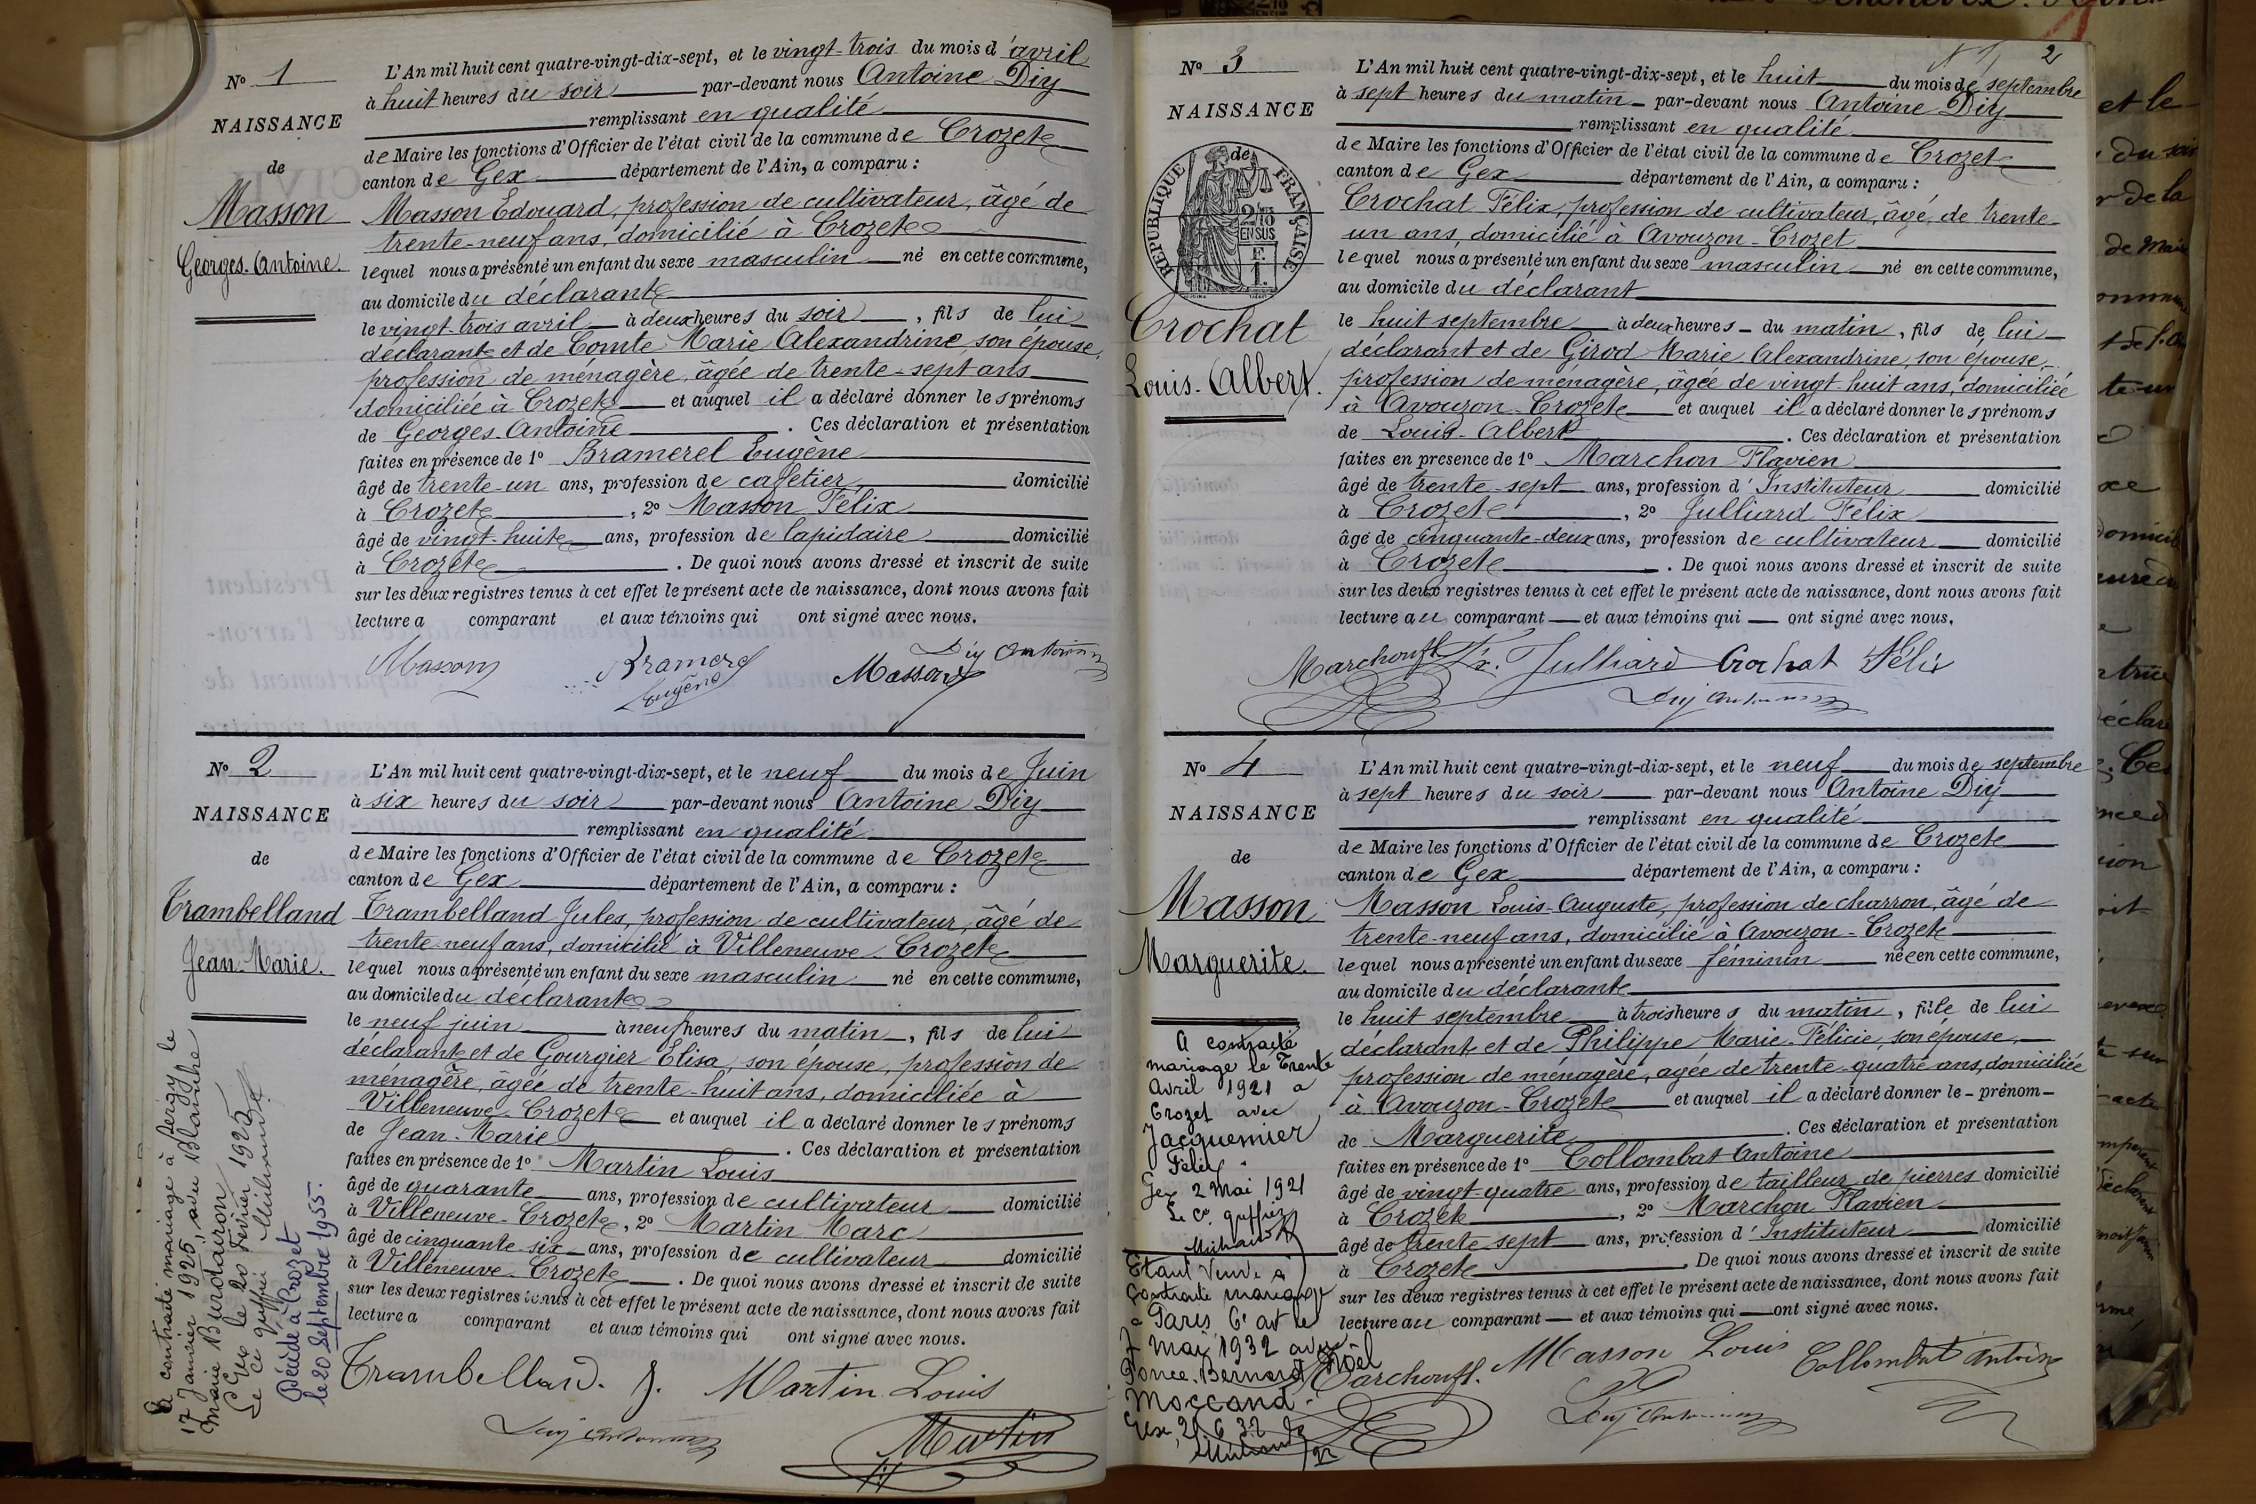 Nº 1
NAISSANCE
de
Masson
Georges-Antoine.
L'An mil huit cent quatre-vingt-dix-sept, et le vingt-trois du mois d'avril
à huit heures du soir par-devant nous Antoine Diy
remplissant en qualité
de Maire les fonctions d'Officier de l'état civil de la commune de Crozet
canton de Gex département de l'Ain, a comparu :
Masson Edouard, profession de cultivateur, âgé de
trente-neuf ans, domicilié à Crozet
lequel nous a présenté un enfant du sexe masculin né en cette commune,
au domicile du déclarant
le vingt-trois avril à deux heures du soir, fils de lui
déclarant et de Comte Marie Alexandrine, son épouse,
profession de ménagère, âgée de trente-sept ans
domiciliée à Crozet et auquel il a déclaré donner les prénoms
de Georges-Antoine. Ces déclaration et présentation
faites en présence de 1º Bramerel Eugène
âgé de trente-un ans, profession de cafetier domicilié
à Crozet, 2º Masson Félix
âgé de vingt-huit ans, profession de lapidaire domicilié
à Crozet. De quoi nous avons dressé et inscrit de suite
sur les deux registres tenus à cet effet le présent acte de naissance, dont nous avons fait
lecture a comparant et aux témoins qui ont signé avec nous.
Masson Bramerel Eugène Masson Diy Antoine
Nº 2
NAISSANCE
de
Trambelland
Jean-Marie.
L'An mil huit cent quatre-vingt-dix-sept, et le neuf du mois de Juin
à six heures du soir par-devant nous Antoine Diy
remplissant en qualité
de Maire les fonctions d'Officier de l'état civil de la commune de Crozet
canton de Gex département de l'Ain, a comparu :
Trambelland Jules, profession de cultivateur, âgé de
trente-neuf ans, domicilié à Villeneuve-Crozet
lequel nous a présenté un enfant du sexe masculin né en cette commune,
au domicile du déclarant
le neuf juin à neuf heures du matin, fils de lui
déclarant et de Gourgier Elisa, son épouse, profession de
ménagère, âgée de trente-huit ans, domiciliée à
Villeneuve-Crozet et auquel il a déclaré donner les prénoms
de Jean-Marie. Ces déclaration et présentation
faites en présence de 1º Martin Louis
âgé de quarante ans, profession de cultivateur domicilié
à Villeneuve-Crozet, 2º Martin Marc
âgé de cinquante-six ans, profession de cultivateur domicilié
à Villeneuve-Crozet. De quoi nous avons dressé et inscrit de suite
sur les deux registres tenus à cet effet le présent acte de naissance, dont nous avons fait
lecture a comparant et aux témoins qui ont signé avec nous.
Trambelland. J. Martin Louis
Diy Antoine Martin
A contracté mariage à Péigy le
17 Janvier 1925, avec Blanche
Marie Burdairon
Gex le 20 Février 1925
Le Cº greffier
Décédé à Crozet
le 20 Septembre 1955.
2
Nº 3
NAISSANCE
de
RÉPUBLIQUE FRANÇAISE
2/10 EN SUS
Crochat
Louis-Albert.
L'An mil huit cent quatre-vingt-dix-sept, et le huit du mois de septembre
à sept heures du matin par-devant nous Antoine Diy
remplissant en qualité
de Maire les fonctions d'Officier de l'état civil de la commune de Crozet
canton de Gex département de l'Ain, a comparu :
Crochat Félix, profession de cultivateur, âgé de trente-
un ans, domicilié à Avouzon-Crozet
lequel nous a présenté un enfant du sexe masculin né en cette commune,
au domicile du déclarant
le huit septembre à deux heures du matin, fils de lui
déclarant et de Girod Marie Alexandrine, son épouse,
profession de ménagère, âgée de vingt-huit ans, domiciliée
à Avouzon-Crozet et auquel il a déclaré donner les prénoms
de Louis-Albert. Ces déclaration et présentation
faites en présence de 1º Marchon Flavien
âgé de trente-sept ans, profession d'Instituteur domicilié
à Crozet, 2º Julliard Félix
âgé de cinquante-deux ans, profession de cultivateur domicilié
à Crozet. De quoi nous avons dressé et inscrit de suite
sur les deux registres tenus à cet effet le présent acte de naissance, dont nous avons fait
lecture au comparant et aux témoins qui ont signé avec nous.
Marchon fl. Fx. Julliard Crochat Félix
Diy Antoine
Nº 4
NAISSANCE
de
Masson
Marguerite.
L'An mil huit cent quatre-vingt-dix-sept, et le neuf du mois de septembre
à sept heures du soir par-devant nous Antoine Diy
remplissant en qualité
de Maire les fonctions d'Officier de l'état civil de la commune de Crozet
canton de Gex département de l'Ain, a comparu :
Masson Louis-Auguste, profession de charron, âgé de
trente-neuf ans, domicilié à Avouzon-Crozet
lequel nous a présenté un enfant du sexe féminin née en cette commune,
au domicile du déclarant
le huit septembre à trois heures du matin, fille de lui
déclarant et de Philippe Marie-Félicie, son épouse,
profession de ménagère, âgée de trente-quatre ans, domiciliée
à Avouzon-Crozet et auquel il a déclaré donner le prénom
de Marguerite. Ces déclaration et présentation
faites en présence de 1º Collombat Antoine
âgé de vingt-quatre ans, profession de tailleur de pierres domicilié
à Crozet, 2º Marchon Flavien
âgé de trente-sept ans, profession d'Instituteur domicilié
à Crozet. De quoi nous avons dressé et inscrit de suite
sur les deux registres tenus à cet effet le présent acte de naissance, dont nous avons fait
lecture au comparant et aux témoins qui ont signé avec nous.
Marchon fl. Masson Louis Collombat Antoine
Diy Antoine
A contracté
mariage le Trente
Avril 1921 à
Crozet avec
Jacquemier
Félix.
Gex 2 Mai 1921
Le Cº greffier
Etant Veuve a
Contracté mariage
à Paris 6e art le
7 Mai 1932 avec
Ponce-Bernard Noël
Moccand.
Gex, 21.6.32